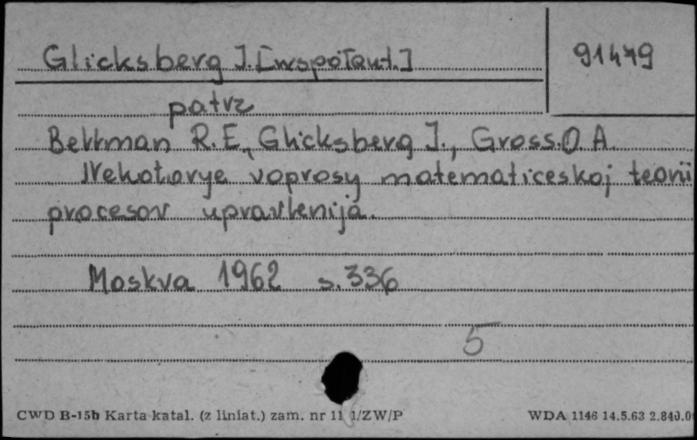 Glicksberg I. [współaut.]
91479
patrz
Bellman R.E., Glicksberg I., Gross.O.A.
Nekotorye voprosy matematiceskoj teorii
procesov upravlenija.
Moskva 1962 s.336
5
CWD B-15b Karta katal. (z liniat.) zam. nr 11 1/ZW/P
WDA 1146 14.5.63 2.840.0